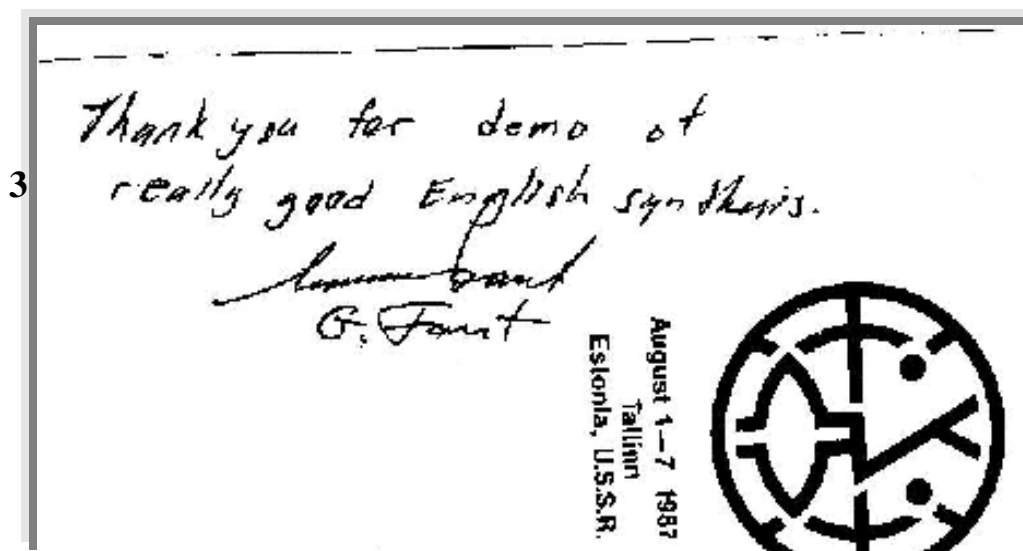 Thank you for demo of
3
really good English synthesis.
G. Fant
August 1–7 1987
Tallinn
Estonia, U.S.S.R.